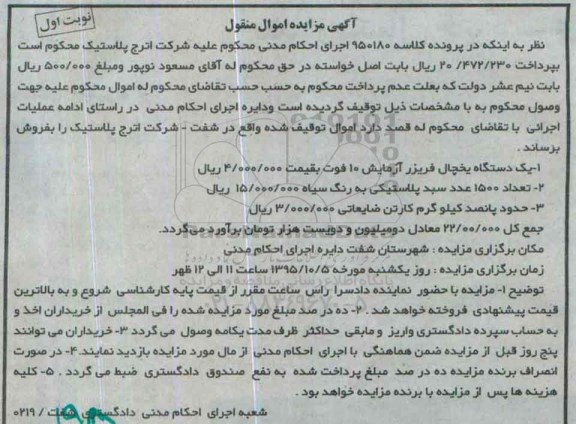 آگهی مزایده اموال منقول
نوبت اول
نظر به اینکه در پرونده کلاسه ۹۵۰۱۸۰ اجرای احکام مدنی محکوم علیه شرکت اترج پلاستیک محکوم است
بپرداخت ۲۰/۴۷۲/۲۳۰ ریال بابت اصل خواسته در حق محکوم له آقای مسعود نوپور ومبلغ ۵۰۰/۰۰۰ ریال
بابت نیم عشر دولت که بعلت عدم پرداخت محکوم به حسب حسب تقاضای محکوم له اموال محکوم علیه جهت
وصول محکوم به با مشخصات ذیل توقیف گردیده است ودایره اجرای احکام مدنی در راستای ادامه عملیات
اجرائی با تقاضای محکوم له قصد دارد اموال توقیف شده واقع در شفت - شرکت اترج پلاستیک را بفروش
برساند .
۱-یک دستگاه یخچال فریزر آزمایش ۱۰ فوت بقیمت ۴/۰۰۰/۰۰۰ ریال
۲- تعداد ۱۵۰۰ عدد سبد پلاستیکی به رنگ سیاه ۱۵/۰۰۰/۰۰۰ ریال
۳- حدود پانصد کیلو گرم کارتن ضایعاتی ۳/۰۰۰/۰۰۰ ریال
جمع کل ۲۲/۰۰/۰۰۰ معادل دومیلیون و دویست هزار تومان برآورد می‌گردد.
مکان برگزاری مزایده : شهرستان شفت دایره اجرای احکام مدنی
زمان برگزاری مزایده : روز یکشنبه مورخه ۱۳۹۵/۱۰/۵ ساعت ۱۱ الی ۱۲ ظهر
توضیح ۱- مزایده با حضور نماینده دادسرا رأس ساعت مقرر از قیمت پایه کارشناسی شروع و به بالاترین
قیمت پیشنهادی فروخته خواهد شد . ۲- ده در صد مبلغ مورد مزایده شده را فی المجلس از خریداران اخذ و
به حساب سپرده دادگستری واریز و مابقی حداکثر ظرف مدت یکامه وصول می گردد ۳- خریداران می توانند
پنج روز قبل از مزایده ضمن هماهنگی با اجرای احکام مدنی از مال مورد مزایده بازدید نمایند.۴- در صورت
انصراف برنده مزایده ده در صد مبلغ پرداخت شده به نفع صندوق دادگستری ضبط می گردد . ۵- کلیه
هزینه ها پس از مزایده با برنده مزایده خواهد بود .
شعبه اجرای احکام مدنی دادگستری شفت / ۰۲۱۹